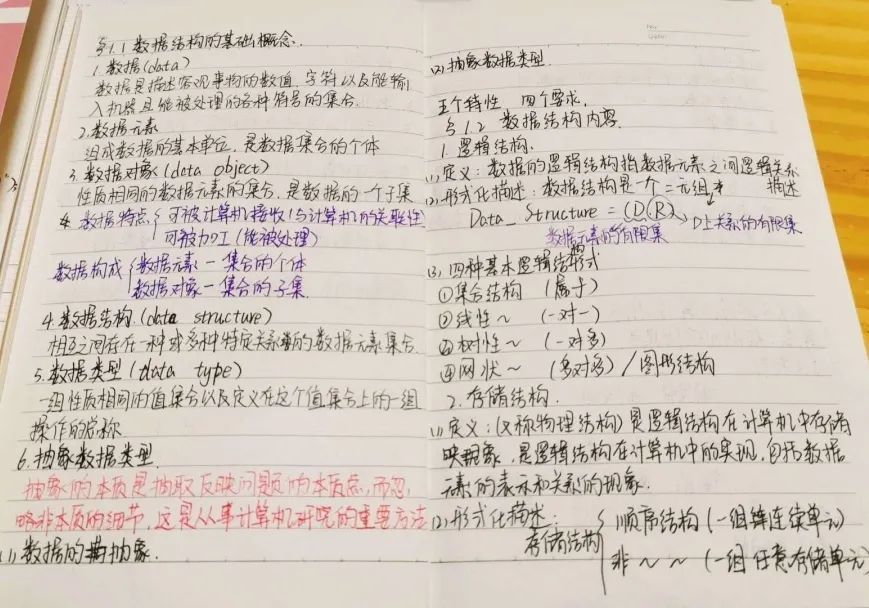 §1.1 数据结构的基础概念.
1. 数据(data)
数据是描述客观事物的数值、字符以及能输
入机器且能被处理的各种符号的集合.
2. 数据元素
组成数据的基本单位，是数据集合的个体
3. 数据对象(data object)
性质相同的数据元素的集合，是数据的一个子集
4. 数据特点{可被计算机接收(与计算机的关联性)
可被加工(能被处理)
数据构成{数据元素－集合的个体
数据对象－集合的子集.
4. 数据结构.(data structure)
相互之间存在一种或多种特定关系的数据元素集合.
5. 数据类型(data type)
一组性质相同的值集合以及定义在这个值集合上的一组
操作的总称
6. 抽象数据类型.
抽象的本质是抽取反映问题的本质点，而忽
略非本质的细节，这是从事计算机研究的重要方法
(1) 数据的抽象.
(2) 抽象数据类型.
五个特性 四个要求.
§1.2 数据结构内容.
1. 逻辑结构.
(1) 定义：数据的逻辑结构指数据元素之间逻辑关系
描述
(2) 形式化描述：数据结构是一个二元组
Data_Structure = (D,R) → D上关系的有限集
数据元素的有限集
(3) 四种基本逻辑结构形式
①集合结构 (属于)
②线性~ (一对一)
③树性~ (一对多)
④网状~ (多对多) / 图形结构
2. 存储结构.
(1) 定义：(又称物理结构) 是逻辑结构在计算机中存储
映现象，是逻辑结构在计算机中的实现，包括数据
元素的表示和关系的现象.
(2) 形式化描述：
存储结构{顺序结构 (一组连续单元)
非~~ (一组任意存储单元)